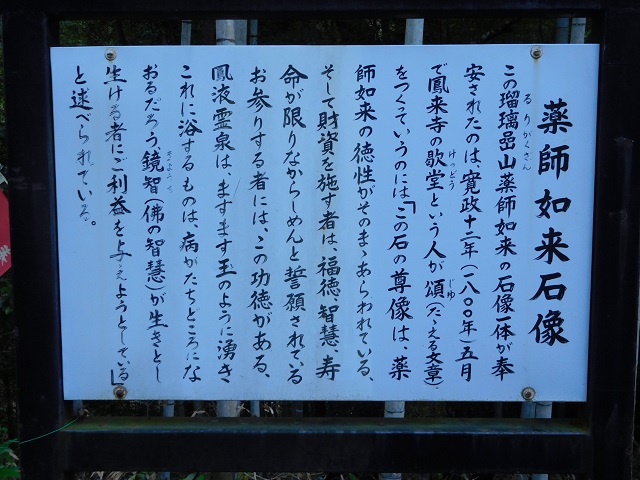 薬師如来石像
この瑠璃嵒山薬師如来の石像一体が奉
るりがくさん
安されたのは、寛政十二年(一八〇〇年)五月
で鳳来寺の歇堂という人が頌(たゝえる文章)
けつどう
じゆ
をつくっていうのには、「この石の尊像は、薬
師如来の徳性がそのまゝあらわれている、
そして財資を施す者は、福徳、智慧、寿
命が限りなからしめんと誓願されている
お参りする者には、この功徳がある、
鳳液霊泉は、ますます玉のように湧き
これに浴するものは、病がたちどころにな
おるだろう、鏡智(佛の智慧)が生きとし
生ける者にご利益を与えようとしている」
と述べられている。